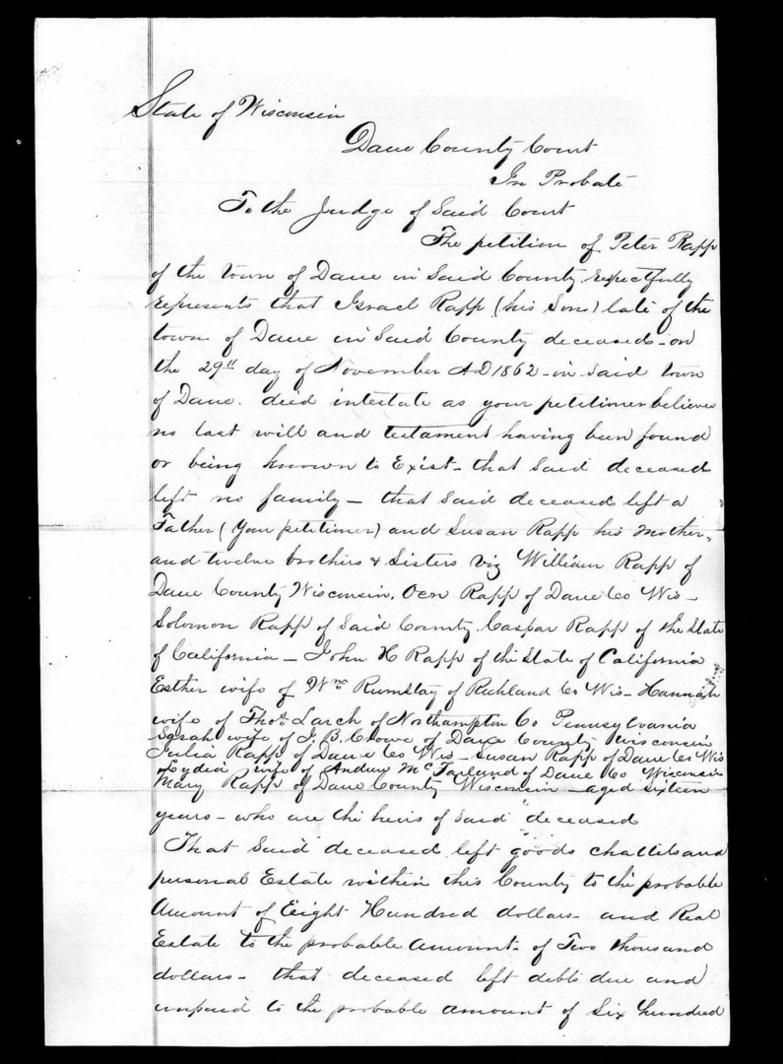 State of Wisconsin
Dane County Court
In Probate
To the Judge of Said Court
The petition of Peter Rapp
of the town of Dane in Said County respectfully
represents that Israel Rapp (his Son) late of the
town of Dane in Said County deceased - on
the 29th day of November AD 1862 - in said town
of Dane. died intestate as your petitioner believes
no last will and testament having been found
or being known to Exist - that Said deceased
left no family - that said deceased left a
Father (Your petitioner) and Susan Rapp his Mother,
and twelve brothers & Sisters viz William Rapp of
Dane County Wisconsin, Rapp of Dane Co Wis -
Solomon Rapp of Said County. Caspar Rapp of the State
of California - John H Rapp of the State of California
Esther wife of Wm of Richland Co Wis - Hannah
wife of Thos. Larch of Northampton Co Pennsylvania
Sarah wife of J. B. Crowe of Dane County Wisconsin
Julia Rapp of Dane Co Wis - Susan Rapp of Dane Co Wis
Lydia wife of Andrew McFarland of Dane Co Wisconsin
Mary Rapp of Dane County Wisconsin - aged sixteen
years - who are the heirs of Said deceased
That Said deceased left goods chattels and
personal Estate within this County to the probable
Amount of Eight Hundred dollars - and Real
Estate to the probable amount of Two thousand
dollars - that deceased left debts due and
unpaid to the probable amount of Six hundred